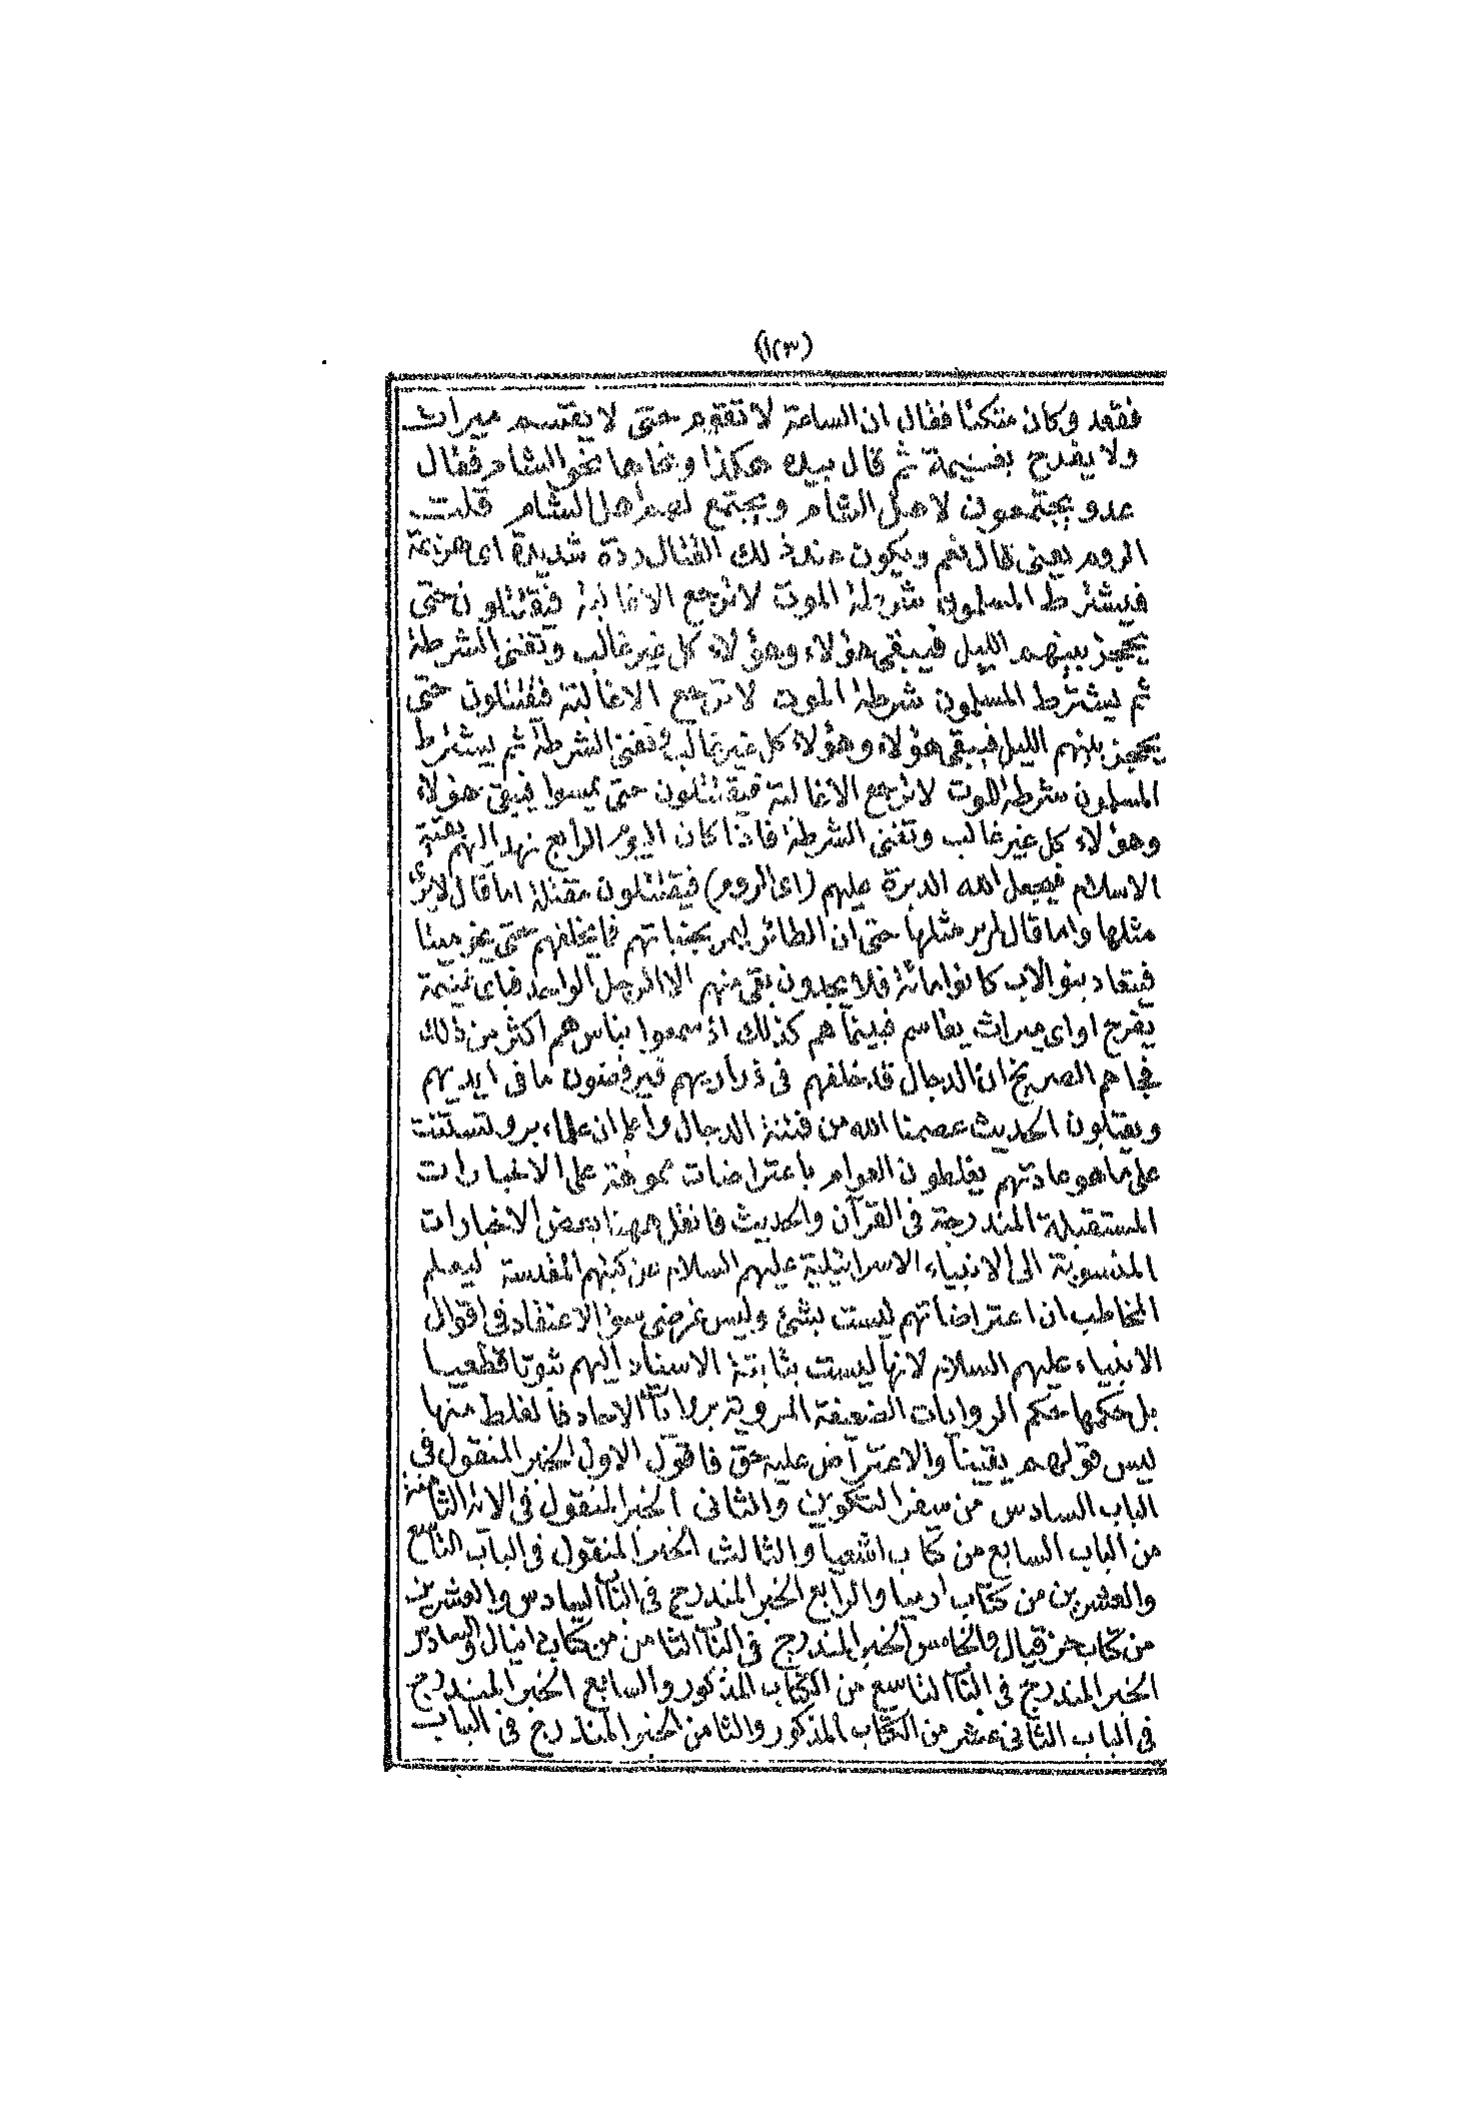 (١٢٣)
فقعد وكان متكئا فقال ان الساعة لا تقوم حتى لا يقتسم ميراث
ولا يفرح بغنيمة ثم قال بيده هكذا ونحاها نحو الشام فقال
عدو يجتمعون لاهل الشام ويجتمع لهم اهل الشام قلت
الروم يعنى قال نعم ويكون عند ذلك القتال ردة شديدة اى هزيمة
فيشترط المسلمون شرطة الموت لا ترجع الا غالبة فيقتتلون حتى
يحجز بينهم الليل فيبقى هؤلاء وهؤلاء كل غير غالب وتفنى الشرطة
ثم يشترط المسلمون شرطة الموت لا ترجع الا غالبة فيقتتلون حتى
يحجز بينهم الليل فيبقى هؤلاء وهؤلاء كل غير غالب وتفنى الشرطة ثم يشترط
المسلمون شرطة الموت لا ترجع الا غالبة فيقتتلون حتى يمسوا فيبقى هؤلاء
وهؤلاء كل غير غالب وتفنى الشرطة فاذا كان اليوم الرابع نهد اليهم بقية
الاسلام فيجعل الله الدبرة عليهم (اى الروم) فيقتتلون مقتلة اما قال لا يرى
مثلها واما قال لم ير مثلها حتى ان الطائر ليمر بجنباتهم فما يخلفهم حتى يخر ميتا
فيتعاد بنو الاب كانوا مائة فلا يجدون بقى منهم الا الرجل الواحد فباى غنيمة
يفرح او اى ميراث يقاسم فبينما هم كذلك اذ سمعوا بناس هم اكثر من ذلك
فجاهم الصريخ ان الدجال قد خلفهم فى ذراريهم فيرفضون ما فى ايديهم
ويقبلون الحديث عصمنا الله من فتنة الدجال واعلم ان علماء بروتستنت
على ما هو عادتهم يغلطون العوام باعتراضات مموهة على الاخبارات
المستقبلة المندرجة فى القرآن والحديث فانقل ههنا بعض الاخبارات
المنسوبة الى الانبياء الاسرائيلية عليهم السلام عن كتبهم المقدسة ليعلم
المخاطب ان اعتراضاتهم ليست بشئ وليس غرضى سوء الاعتقاد فى اقوال
الانبياء عليهم السلام لانها ليست بثابتة الاسناد اليهم ثبوتا قطعيا
بل حكمها حكم الروايات الضعيفة المروية بروايات الاحاد فالغلط منها
ليس قولهم يقيناً والاعتراض عليه حق فاقول الاول الخبر المنقول فى
الباب السادس من سفر التكوين والثانى الخبر المنقول فى الاية الثامنة
من الباب السابع من كتاب اشعيا والثالث الخبر المنقول فى الباب التاسع
والعشرين من كتاب ارميا والرابع الخبر المندرج فى الباب السادس والعشرين
من كتاب حزقيال والخامس الخبر المندرج فى الباب الثامن من كتاب دانيال والسادس
الخبر المندرج فى الباب التاسع من الكتاب المذكور والسابع الخبر المندرج
فى الباب الثانى عشر من الكتاب المذكور والثامن الخبر المندرج فى الباب